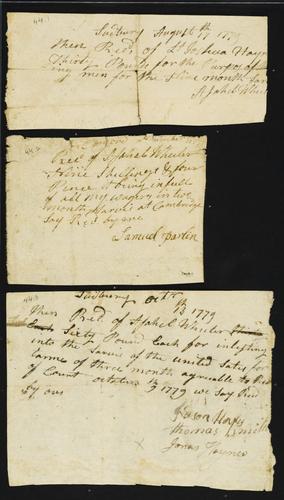 44.
Sudbury August th 1779
then Recd of Lt Joshua Hayn
Thirty Pounds for the Purpos of
ing men for the Nine month Sar
Asahel Whee
44.
Recd of Asahel Wheeler
Nine Shillings & four
Pence it being in full
of all my wages in two
month Sarves at Cambridge
Say Recd by me
Samuel Parlin
44.
Sudbury Octr th 1779
then Recd of Asahel Wheeler
Each Sixty Pound Each for inlisting
into the Sarves of the united Sates for
tarme of three month agreable to
of Count october 1779 we Say Recd
By ous
Jason
Thomas
Jonas Haynes